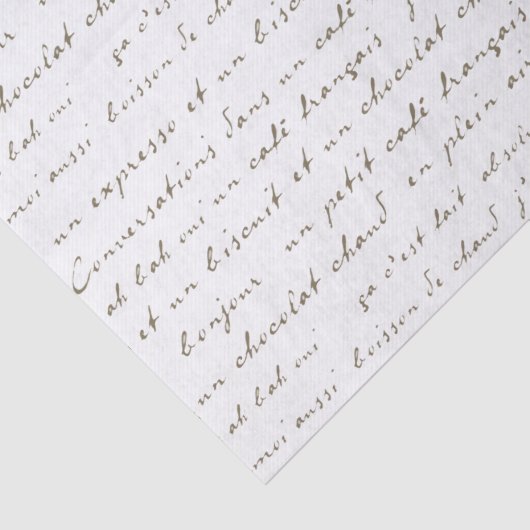 chocolat
ah bah oui ça c'es
moi aussi, boisson de cha
un expresso et un bis
Conversations dans un café
ah bah oui un café français
et un biscuit et un chocolat
bonjour un petit café français
un chocolat chaud en plein
ah bah oui ça c'est fait
moi aussi, boisson de chaud